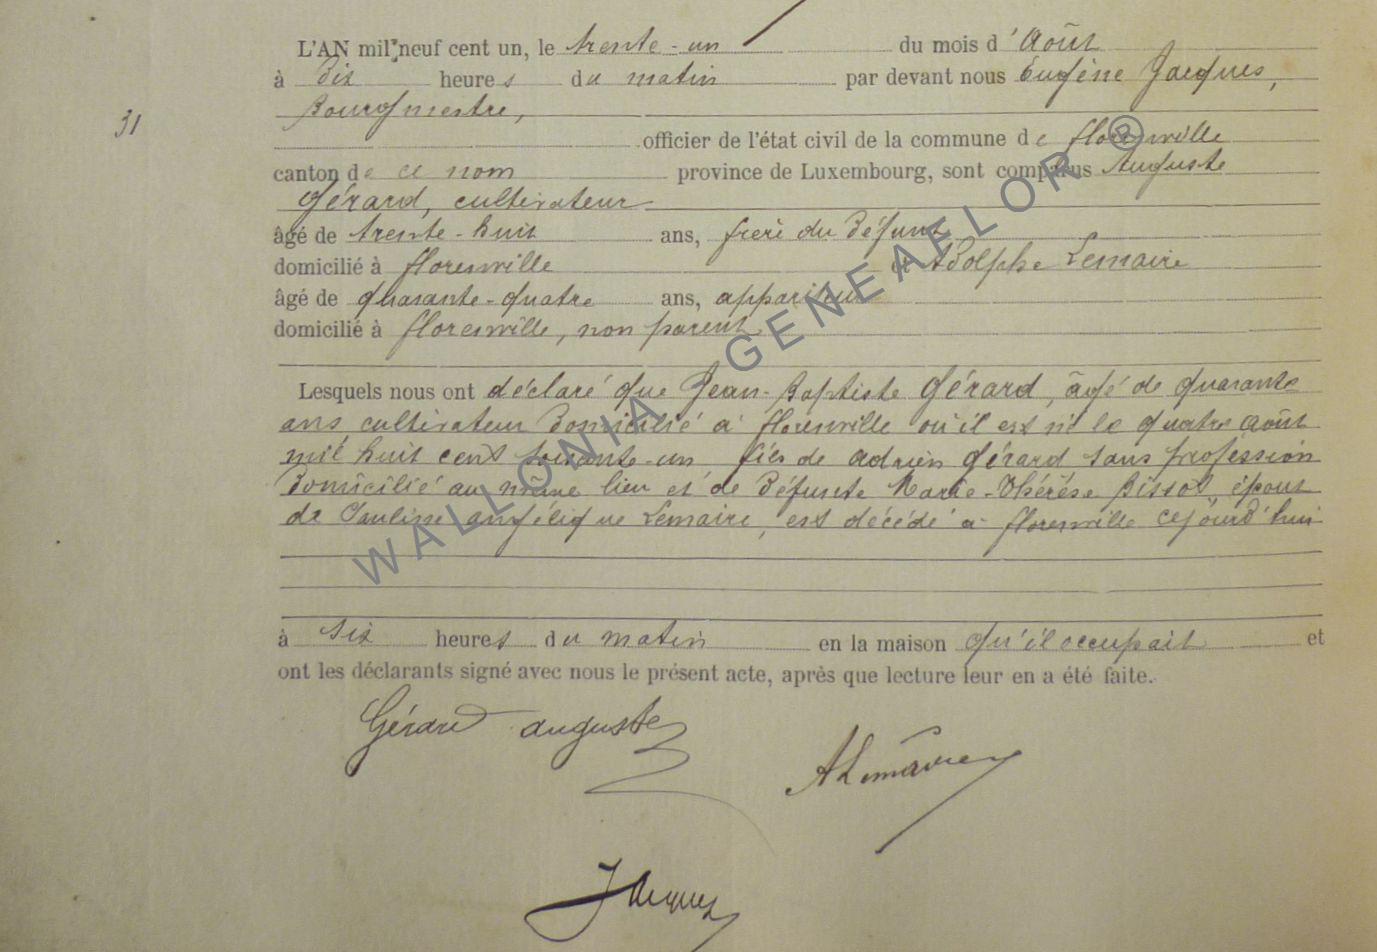 L'AN mil neuf cent un, le trente-un du mois d'Août
à dix heures du matin par devant nous Eugène Jacques,
Bourgmestre,
31
officier de l'état civil de la commune de florenville
canton de ce nom province de Luxembourg, sont comparus Auguste
Gérard, cultivateur
âgé de trente-huit ans, frère du défunt
domicilié à florenville et Adolphe Lemaire
âgé de quarante-quatre ans, appariteur
domicilié à florenville, non parent
Lesquels nous ont déclaré que Jean-Baptiste Gérard, âgé de quarante
ans cultivateur domicilié à florenville où il est né le quatre août
mil huit cent soixante-un fils de adrien Gérard sans profession
domicilié au même lieu et de défunte Marie-Thérèse époux
de Pauline angélique Lemaire, est décédé à florenville cejourd'hui
à six heures du matin en la maison qu'il occupait et
ont les déclarants signé avec nous le présent acte, après que lecture leur en a été faite.
Gérard auguste
ALemaire
Jacques
WALLONIA GENEAFLOR ®